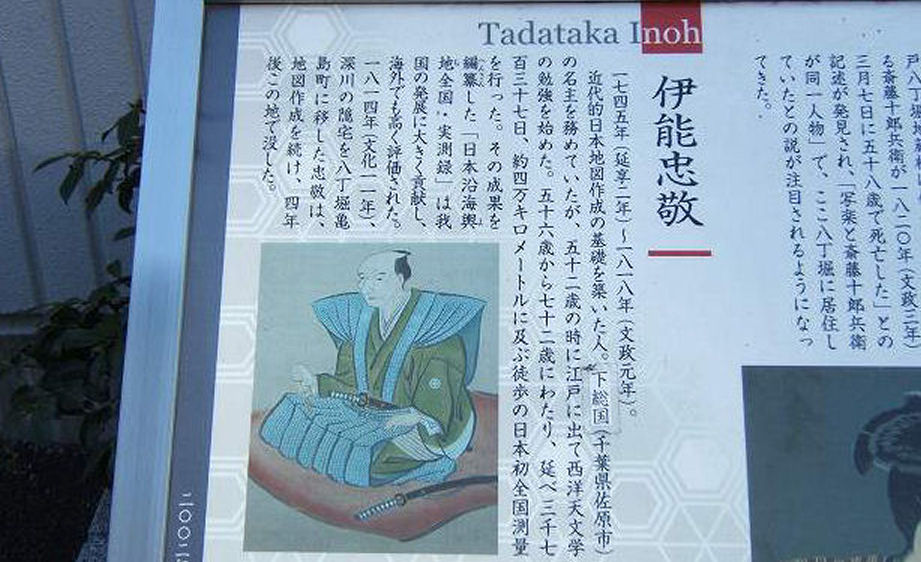 戸八丁堀
る斎藤十郎兵衛が一八二〇年(文政三年)
三月七日に五十八歳で死亡した」との
記述が発見され、「写楽と斎藤十郎兵衛
が同一人物」で、ここ八丁堀に居住し
ていたとの説が注目されるようになっ
てきた。
Tadataka Inoh
伊能忠敬
一七四五年(延享二年)~一八一八年(文政元年)。
近代的日本地図作成の基礎を築いた人。下総国(千葉県佐原市)
の名主を務めていたが、五十一歳の時に江戸に出て西洋天文学
の勉強を始めた。五十六歳から七十二歳にわたり、延べ三千七
百三十七日、約四万キロメートルに及ぶ徒歩の日本初全国測量
を行った。その成果を
編纂した「日本沿海輿
地全図・実測録」は我
国の発展に大きく貢献し、
海外でも高く評価された。
一八一四年(文化一一年)、
深川の隠宅を八丁堀亀
島町に移した忠敬は、
地図作成を続け、四年
後この地で没した。
二〇〇二